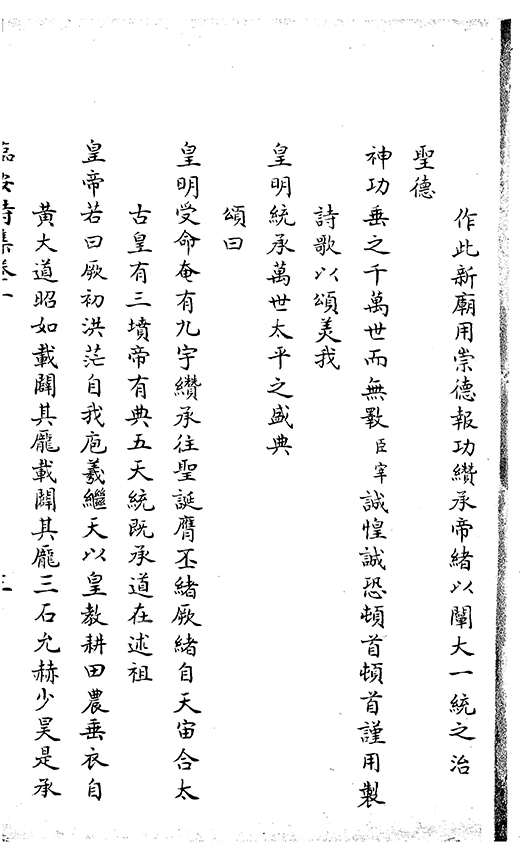 作此新廟用崇德報功纘承帝緒以闡大一統之治
聖德
神功垂之千萬世而無斁臣宰誠惶誠恐頓首頓首謹用製
詩歌以頌美我
皇明統承萬世太平之盛典
頌曰
皇明受命奄有九宇纘承往聖誕膺丕緒厥緒自天宙合太
古皇有三墳帝有典五天統既承道在述祖
皇帝若曰厥初洪茫自我庖羲繼天以皇教耕田農垂衣自
黃大道昭如載闢其龎載闢其龎三石允赫少昊是承
臨安詩集卷一
三